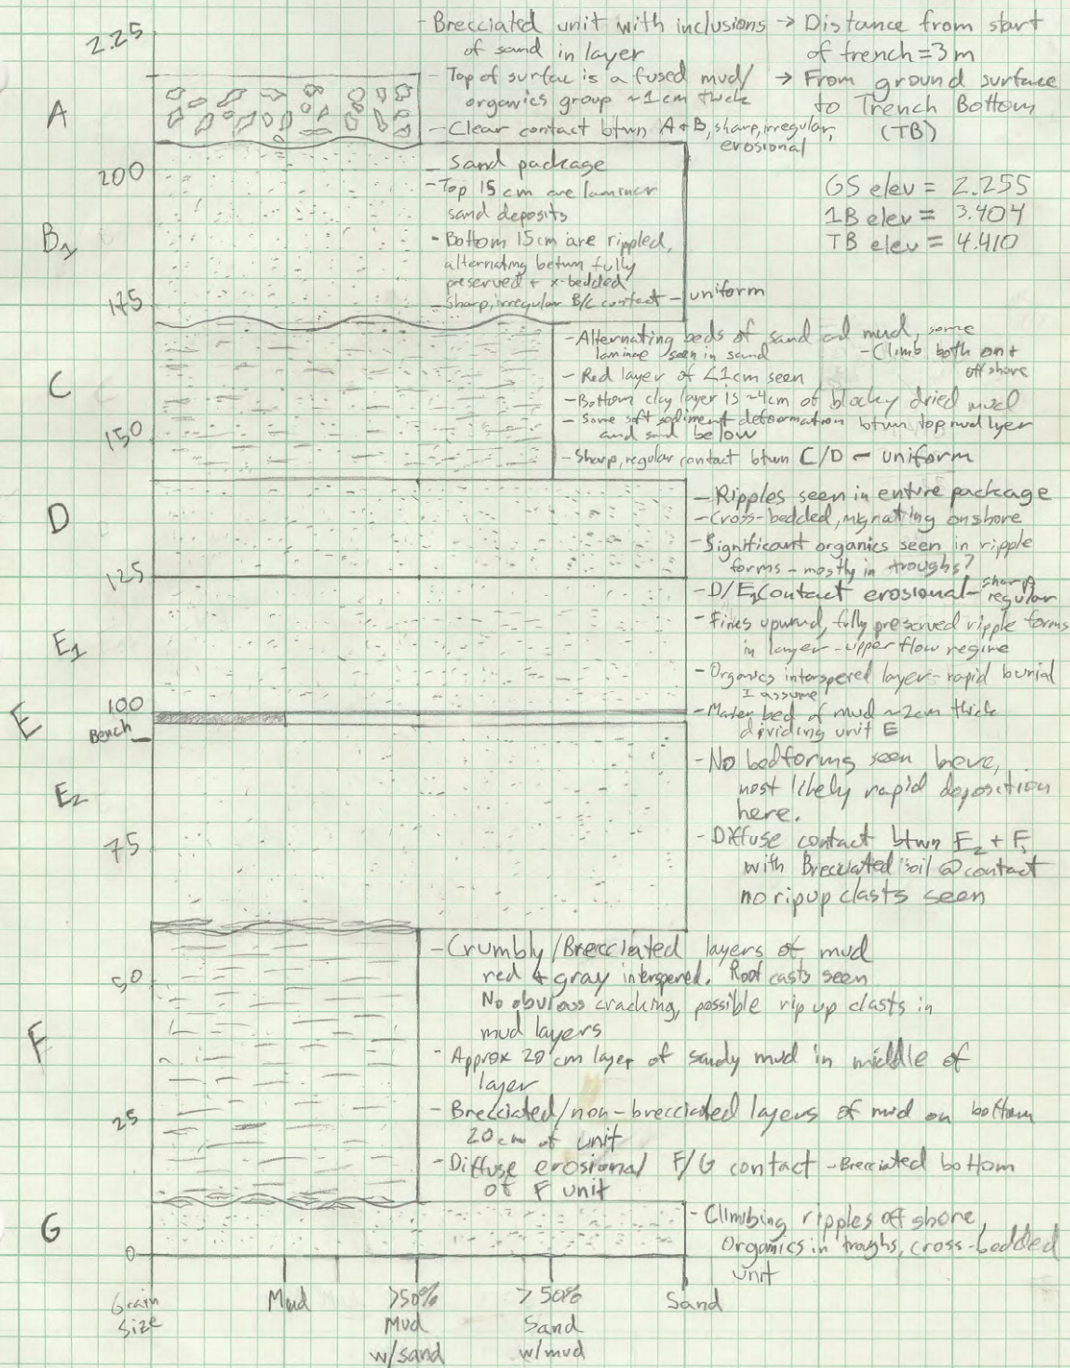 2.25
- Brecciated unit with inclusions
of sand in layer
- Top of surfac is a fused mud/
organics group ~1cm thick
- Clear contact btwn A+B, sharp, irregular,
erosional
→ Distance from start
of trench = 3m
→ From ground surface
to Trench Bottom
(TB)
GS elev = 2.255
1B elev = 3.404
TB elev = 4.410
A
200
- Sand package
- Top 15 cm are laminar
sand deposits
- Bottom 15cm are rippled,
alternating betwn fully
preserved + x-bedded
- Sharp, irregular B/C contact - uniform
B1
175
- Alternating beds of sand and mud, some
laminae seen in sand
- Climb both on +
off shore
- Red layer of <1cm seen
- Bottom clay layer is ~4cm of blocky dried mud
- Some soft sediment deformation btwn top mud lyer
and sand below
- Sharp, regular contact btwn C/D - uniform
C
150
D
- Ripples seen in entire package
- Cross-bedded, migrating onshore
- Significant organics seen in ripple
forms - mostly in troughs?
125
- D/E1 Contact erosional - sharp
regular
- Fines upward, fully preserved ripple forms
in layer - upper flow regime
- Organics interspered layer - rapid burial
I assume
- Marker bed of mud ~2cm thick
dividing unit E
E1
100
E
Bench
- No bedforms seen here,
most likely rapid deposition
here.
- Diffuse contact btwn E2 + F,
with Brecciated soil @ contact
no ripup clasts seen
E2
75
- Crumbly/Brecciated layers of mud
red + gray interspered. Root casts seen
No obvious cracking, possible rip up clasts in
mud layers
- Approx 20 cm layer of sandy mud in middle of
layer
- Brecciated/non-brecciated layers of mud on bottom
20 cm of unit
- Diffuse erosional F/G contact - Brecciated bottom
of F unit
50
F
25
G
- Climbing ripples off shore,
Organics in troughs, cross-bedded
unit
0
Grain
Size
Mud
>50%
Mud
w/sand
>50%
Sand
w/mud
Sand